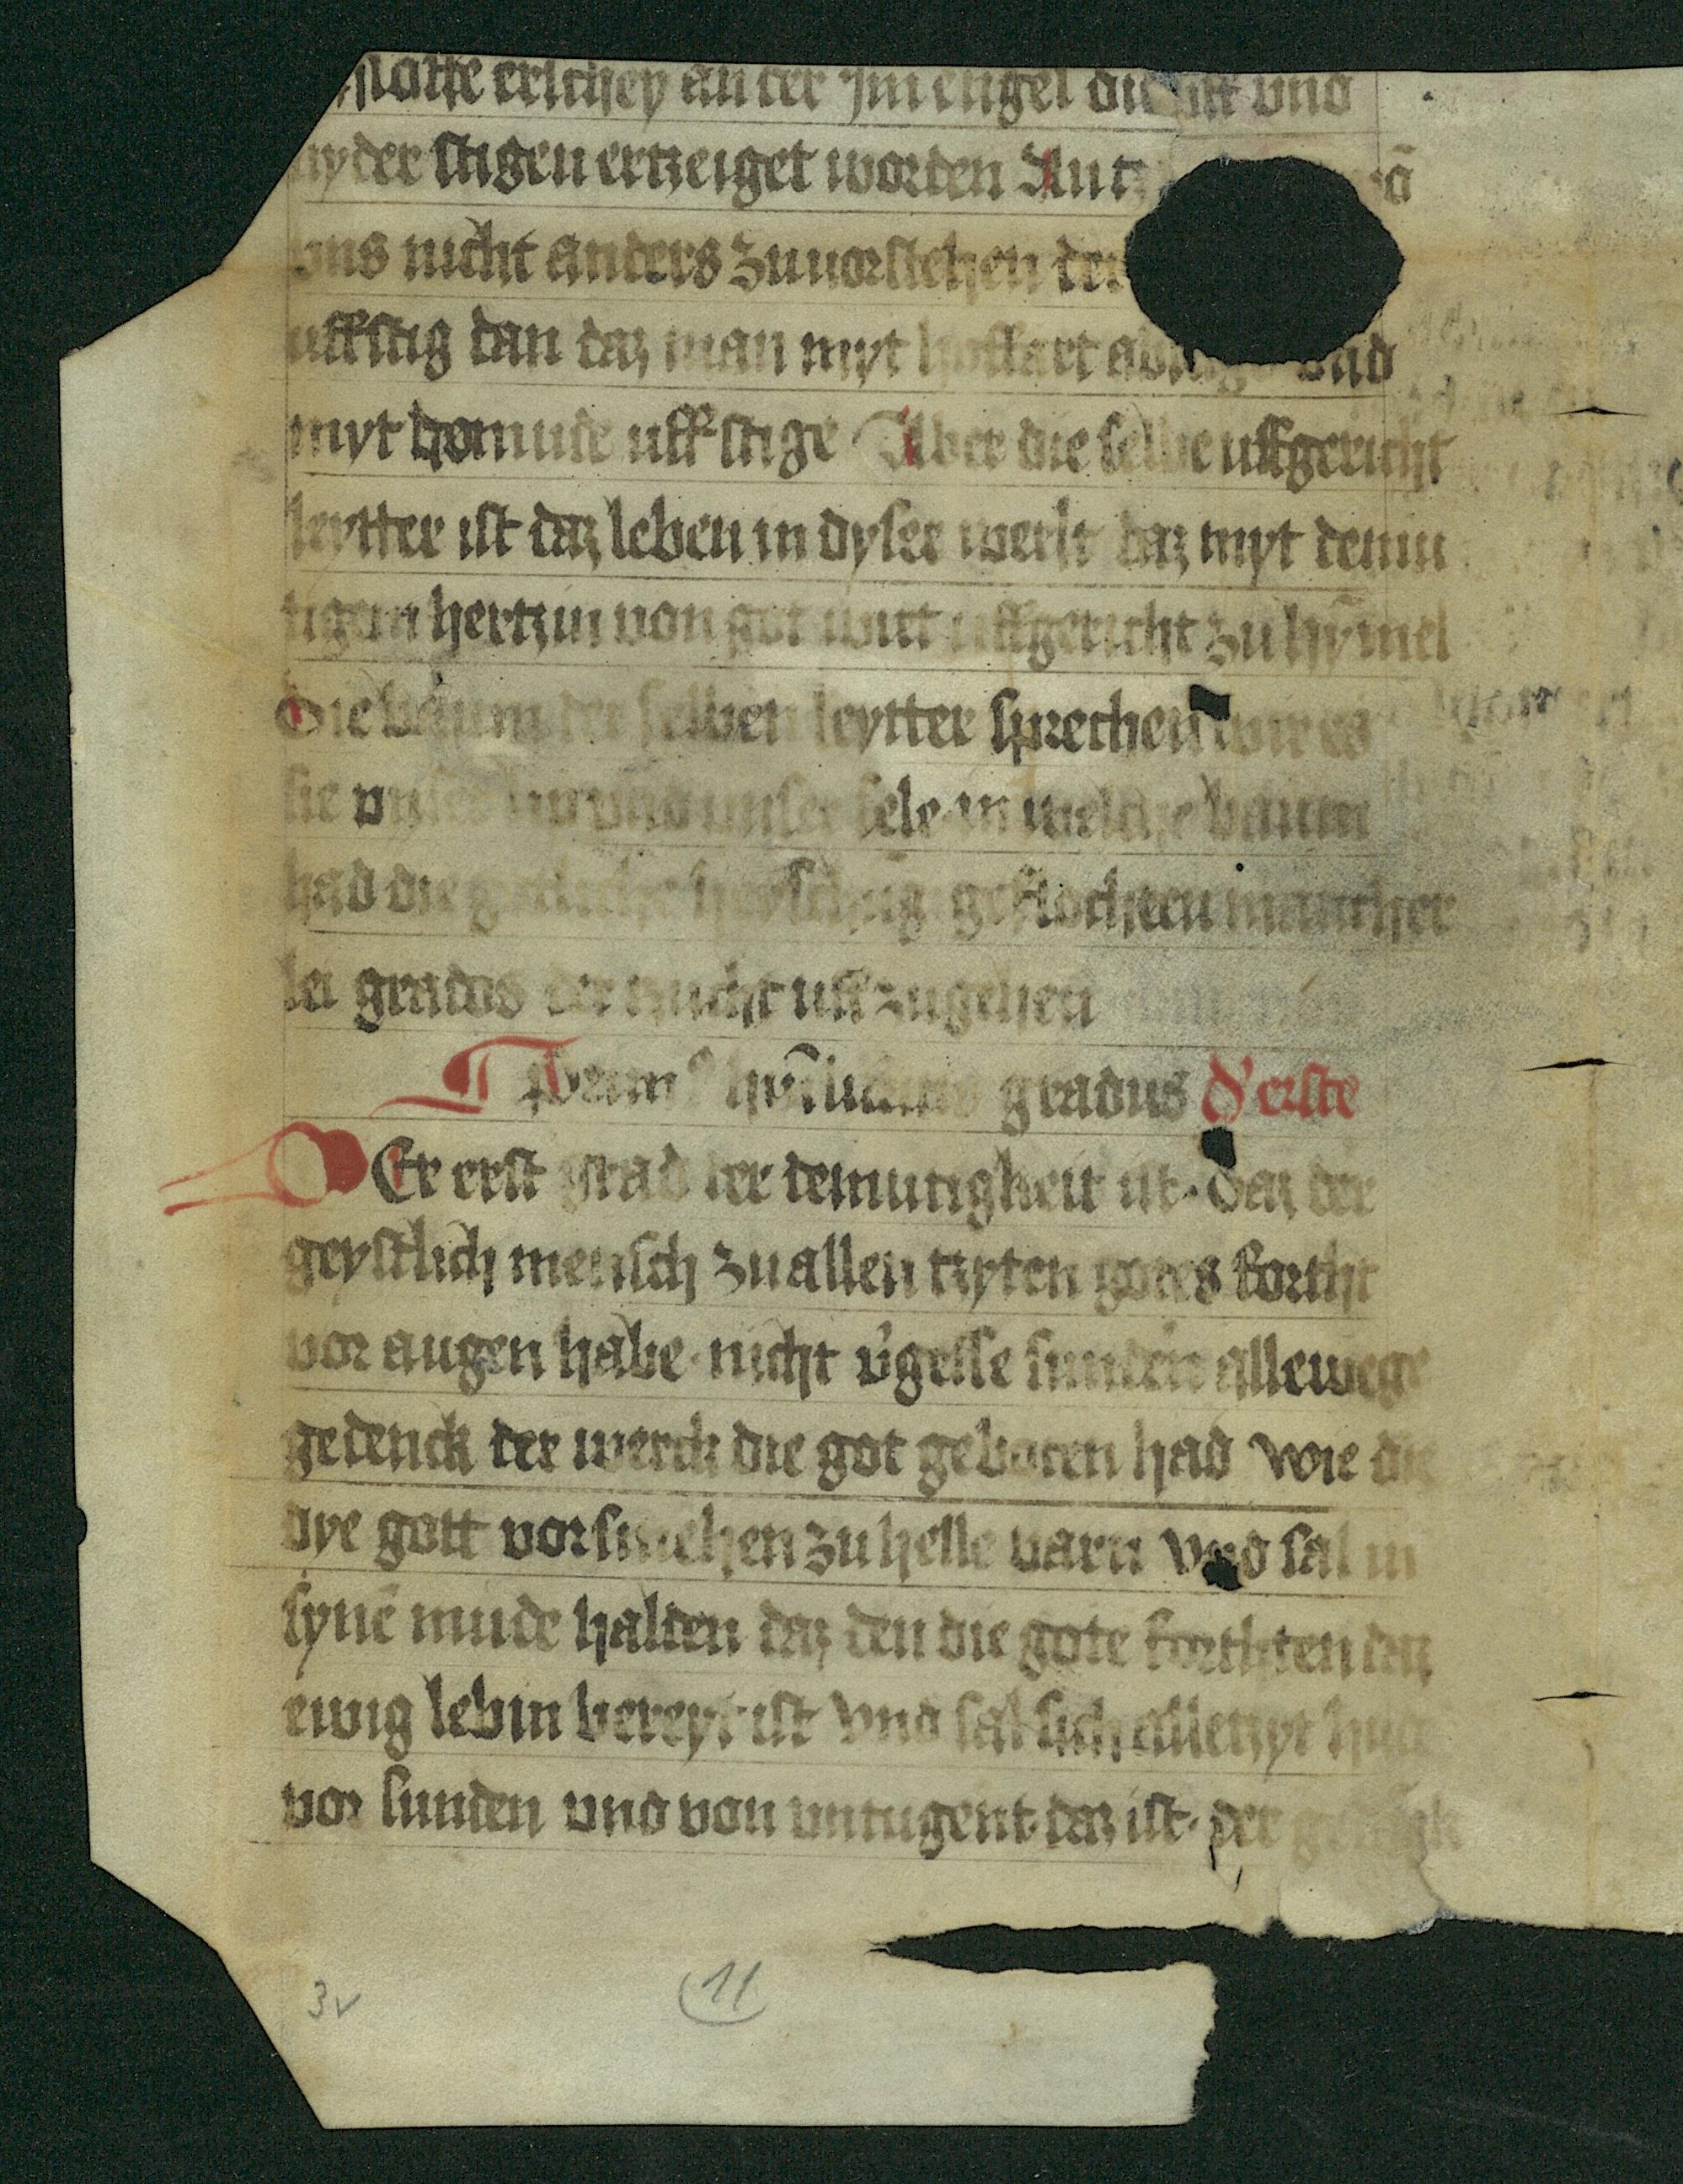 slaffe erschey an der im engel die uff vnd
nyder stigen ertzeiget worden An tz
vns nicht anders zu vorstehen der
uffstig dan daz man myt hoffart abstige vnd
myt homude uff stige Aber die selbe uffgericht
leytter ist daz leben in dyser werlt daz myt demu
tigem hertzin von got wirt uffgericht zu hỹmel
Die baum der selben leytter sprechen wir es
sie vnser lip vnd vnser sele in welche baum
had die gotliche heyschũg geflochten mancher
lei grados der zucht uff zugehen
Prim⁹ hũilitatis gradus d' erste
DEr erst grad der demutigheit ist · daz der
geystlich mensch zu allen tzyten gotes forcht
vor augen habe · nicht v'gesse sunder allewege
gedenck der werck die got geboten had wie die
dye gott vorsmehen zu helle varn vnd sal in
synẽ mude halden daz den die gote forchten daz
ewig lebin bereyt ist vnd sal sich alletzyt hute
vor sunden vnd von vntugent · daz ist · der
3v
11